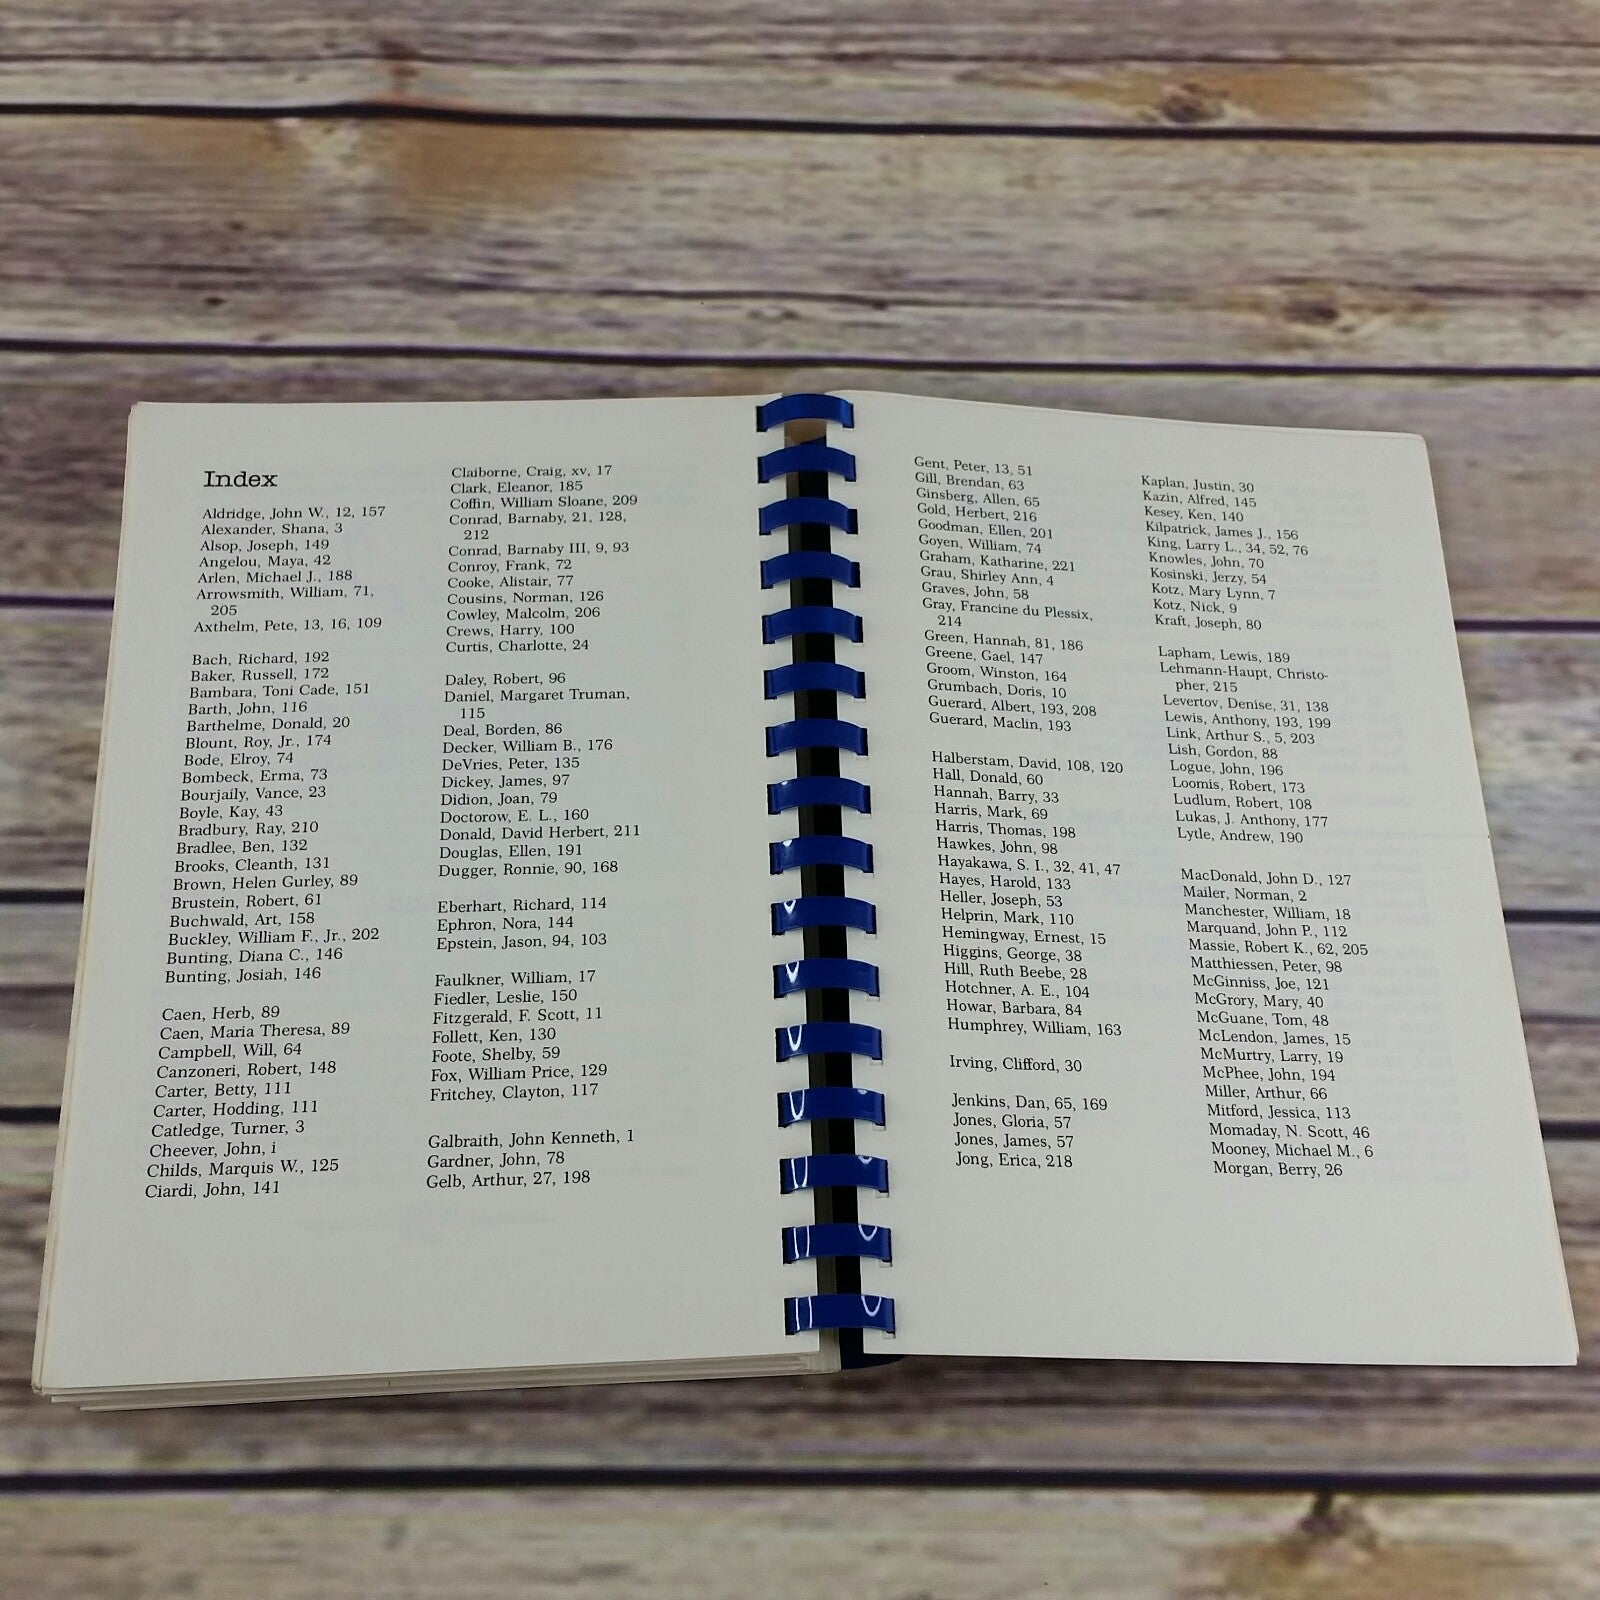 Index
Aldridge, John W., 12, 157
Alexander, Shana, 3
Alsop, Joseph, 149
Angelou, Maya, 42
Arlen, Michael J., 188
Arrowsmith, William, 71,
205
Axthelm, Pete, 13, 16, 109
Bach, Richard, 192
Baker, Russell, 172
Bambara, Toni Cade, 151
Barth, John, 116
Barthelme, Donald, 20
Blount, Roy, Jr., 174
Bode, Elroy, 74
Bombeck, Erma, 73
Bourjaily, Vance, 23
Boyle, Kay, 43
Bradbury, Ray, 210
Bradlee, Ben, 132
Brooks, Cleanth, 131
Brown, Helen Gurley, 89
Brustein, Robert, 61
Buchwald, Art, 158
Buckley, William F., Jr., 202
Bunting, Diana C., 146
Bunting, Josiah, 146
Caen, Herb, 89
Caen, Maria Theresa, 89
Campbell, Will, 64
Canzoneri, Robert, 148
Carter, Betty, 111
Carter, Hodding, 111
Catledge, Turner, 3
Cheever, John, i
Childs, Marquis W., 125
Ciardi, John, 141
Claiborne, Craig, xv, 17
Clark, Eleanor, 185
Coffin, William Sloane, 209
Conrad, Barnaby, 21, 128,
212
Conrad, Barnaby III, 9, 93
Conroy, Frank, 72
Cooke, Alistair, 77
Cousins, Norman, 126
Cowley, Malcolm, 206
Crews, Harry, 100
Curtis, Charlotte, 24
Daley, Robert, 96
Daniel, Margaret Truman,
115
Deal, Borden, 86
Decker, William B., 176
DeVries, Peter, 135
Dickey, James, 97
Didion, Joan, 79
Doctorow, E. L., 160
Donald, David Herbert, 211
Douglas, Ellen, 191
Dugger, Ronnie, 90, 168
Eberhart, Richard, 114
Ephron, Nora, 144
Epstein, Jason, 94, 103
Faulkner, William, 17
Fiedler, Leslie, 150
Fitzgerald, F. Scott, 11
Follett, Ken, 130
Foote, Shelby, 59
Fox, William Price, 129
Fritchey, Clayton, 117
Galbraith, John Kenneth, 1
Gardner, John, 78
Gelb, Arthur, 27, 198
Gent, Peter, 13, 51
Gill, Brendan, 63
Ginsberg, Allen, 65
Gold, Herbert, 216
Goodman, Ellen, 201
Goyen, William, 74
Graham, Katharine, 221
Grau, Shirley Ann, 4
Graves, John, 58
Gray, Francine du Plessix,
214
Green, Hannah, 81, 186
Greene, Gael, 147
Groom, Winston, 164
Grumbach, Doris, 10
Guerard, Albert, 193, 208
Guerard, Maclin, 193
Halberstam, David, 108, 120
Hall, Donald, 60
Hannah, Barry, 33
Harris, Mark, 69
Harris, Thomas, 198
Hawkes, John, 98
Hayakawa, S. I., 32, 41, 47
Hayes, Harold, 133
Heller, Joseph, 53
Helprin, Mark, 110
Hemingway, Ernest, 15
Higgins, George, 38
Hill, Ruth Beebe, 28
Hotchner, A. E., 104
Howar, Barbara, 84
Humphrey, William, 163
Irving, Clifford, 30
Jenkins, Dan, 65, 169
Jones, Gloria, 57
Jones, James, 57
Jong, Erica, 218
Kaplan, Justin, 30
Kazin, Alfred, 145
Kesey, Ken, 140
Kilpatrick, James J., 156
King, Larry L., 34, 52, 76
Knowles, John, 70
Kosinski, Jerzy, 54
Kotz, Mary Lynn, 7
Kotz, Nick, 9
Kraft, Joseph, 80
Lapham, Lewis, 189
Lehmann-Haupt, Christo-
pher, 215
Levertov, Denise, 31, 138
Lewis, Anthony, 193, 199
Link, Arthur S., 5, 203
Lish, Gordon, 88
Logue, John, 196
Loomis, Robert, 173
Ludlum, Robert, 108
Lukas, J. Anthony, 177
Lytle, Andrew, 190
MacDonald, John D., 127
Mailer, Norman, 2
Manchester, William, 18
Marquand, John P., 112
Massie, Robert K., 62, 205
Matthiessen, Peter, 98
McGinniss, Joe, 121
McGrory, Mary, 40
McGuane, Tom, 48
McLendon, James, 15
McMurtry, Larry, 19
McPhee, John, 194
Miller, Arthur, 66
Mitford, Jessica, 113
Momaday, N. Scott, 46
Mooney, Michael M., 6
Morgan, Berry, 26